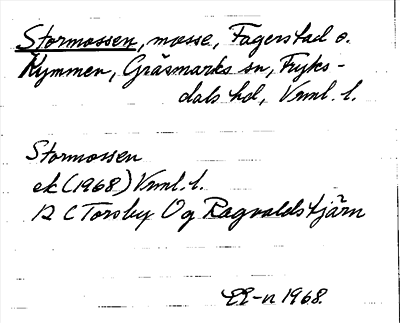 Stormossen, mosse, Fagerstad o.
Kymmen, Gräsmarks sn, Fryks-
dals hd, Vrml. l.
Stormossen
ek (1968) Vrml. l.
12 C Torsby Og Ragvaldstjärn
1968.